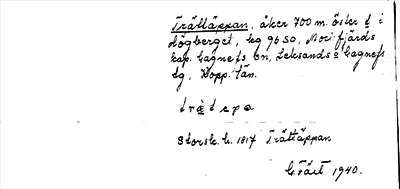 Trättäppan, åker 700 m. öster t i
Högberget, hg 9650, Mos fjärds
kap. Gagnefs sn, Leksands o Gagnefs
tg, Kopp. län.
Storsk. h. 1817 Trättäppan
1940.